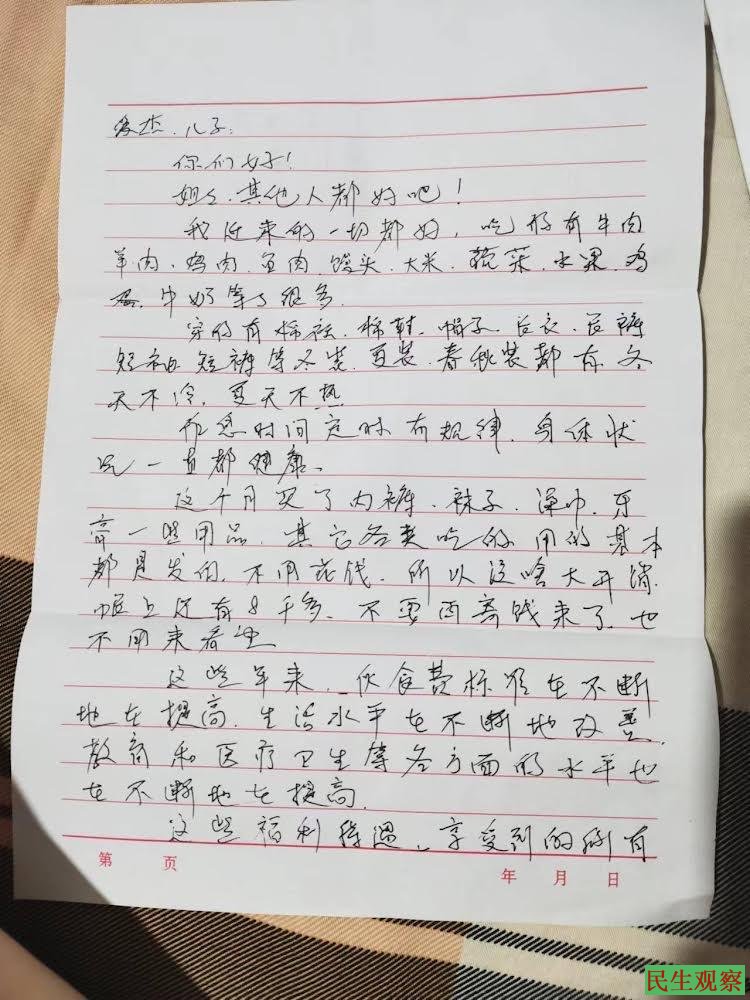 爱杰、儿子：
你们好！
姐姐、其他人都好吧！
我近来的一切都好，吃得有牛肉
羊肉、鸡肉、鱼肉、馒头、大米、蔬菜、水果、鸡
蛋、牛奶等等很多。
穿的有棉袄、棉鞋、帽子、长衣、长裤
短袖、短裤等冬装、夏装、春秋装都有，冬
天不冷，夏天不热
作息时间定时有规律，身体状
况一直都健康。
这个月买了内裤、袜子、澡巾、牙
膏一些用品，其它各类吃的用的基本
都是发的，不用花钱，所以没啥大开销
帐上还有8千多，不要再寄钱来了，也
不用来看
这些年来，伙食费标准在不断
地在提高，生活水平在不断地改善，
教育和医疗卫生等各方面的水平也
在不断地在提高。
这些福利待遇，享受到的所有
第 页
年 月 日
民生观察